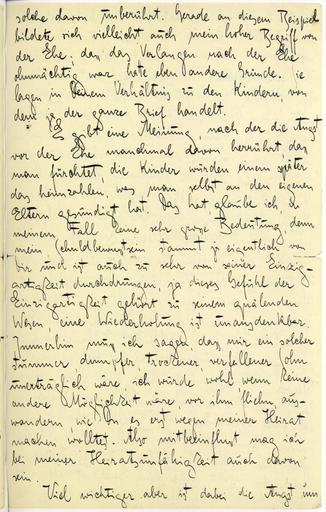 solche davon unberührt. Gerade an diesem Beispiel
bildete sich vielleicht auch mein hoher Begriff von
der Ehe, das Verlangen nach der Ehe
ohnmächtig war hatte eben andere Gründe. Sie
lagen in Deinem Verhältnis zu den Kindern, von
dem ja der ganze Brief handelt.
Es gibt eine Meinung, nach der die Angst
vor der Ehe manchmal davon herrührt, dass
man fürchtet, die Kinder würden einem später
das heimzahlen, was man selbst an den eigenen
Eltern gesündigt hat. Das hat glaube ich in
meinem Fall keine sehr grosse Bedeutung, denn
mein Schuldbewusstsein stammt ja eigentlich von
Dir und ist auch zu sehr von seiner Einzig-
artigkeit durchdrungen, ja dieses Gefühl der
Einzigartigkeit gehört zu seinem quälenden
Wesen, eine Wiederholung ist unausdenkbar.
Immerhin muss ich sagen, dass mir ein solcher
stummer dumpfer, trockener, verfallener Sohn
unerträglich wäre, ich würde wohl, wenn keine
andere Möglichkeit wäre, vor ihm fliehn, aus-
wandern wie Du es erst wegen meiner Heirat
machen wolltest. Also mitbeeinflusst mag ich
bei meiner Heiratsunfähigkeit auch davon
sein.
Viel wichtiger aber ist dabei die Angst um